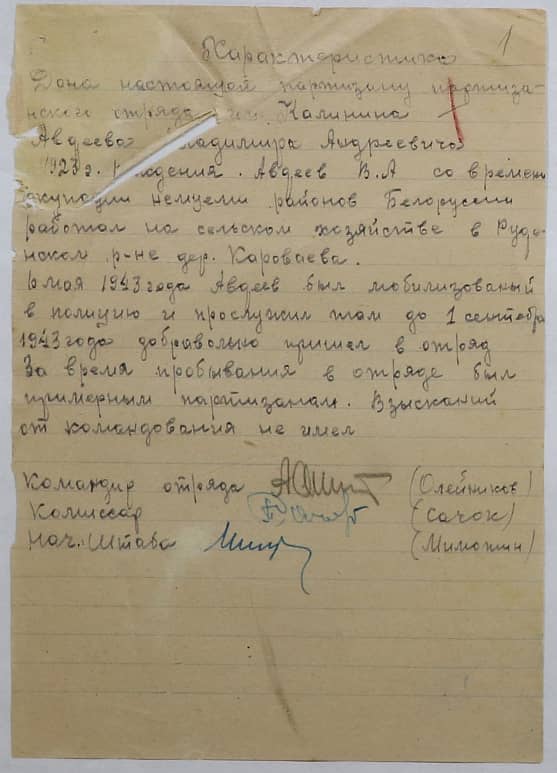 1
Характеристика
Дана настоящая партизану партиза-
нского отряда им. Калинина
Авдеева Владимира Андреевича
1923 г. рождения. Авдеев В.А со времени
окупации немцами районов Белорусии
работал на сельском хозяйстве в Руде-
нском р-не дер. Короваева.
6 мая 1943 года Авдеев был мобилизованый
в полицию и прослужил там до 1 сентебра
1943 года добравольно пришел в отряд
За время пробывания в отряде был
примерным партизанам. Взысканий
от командования не имел
Командир отряда (Олейников)
Комиссар (Сачок)
Нач. Штаба